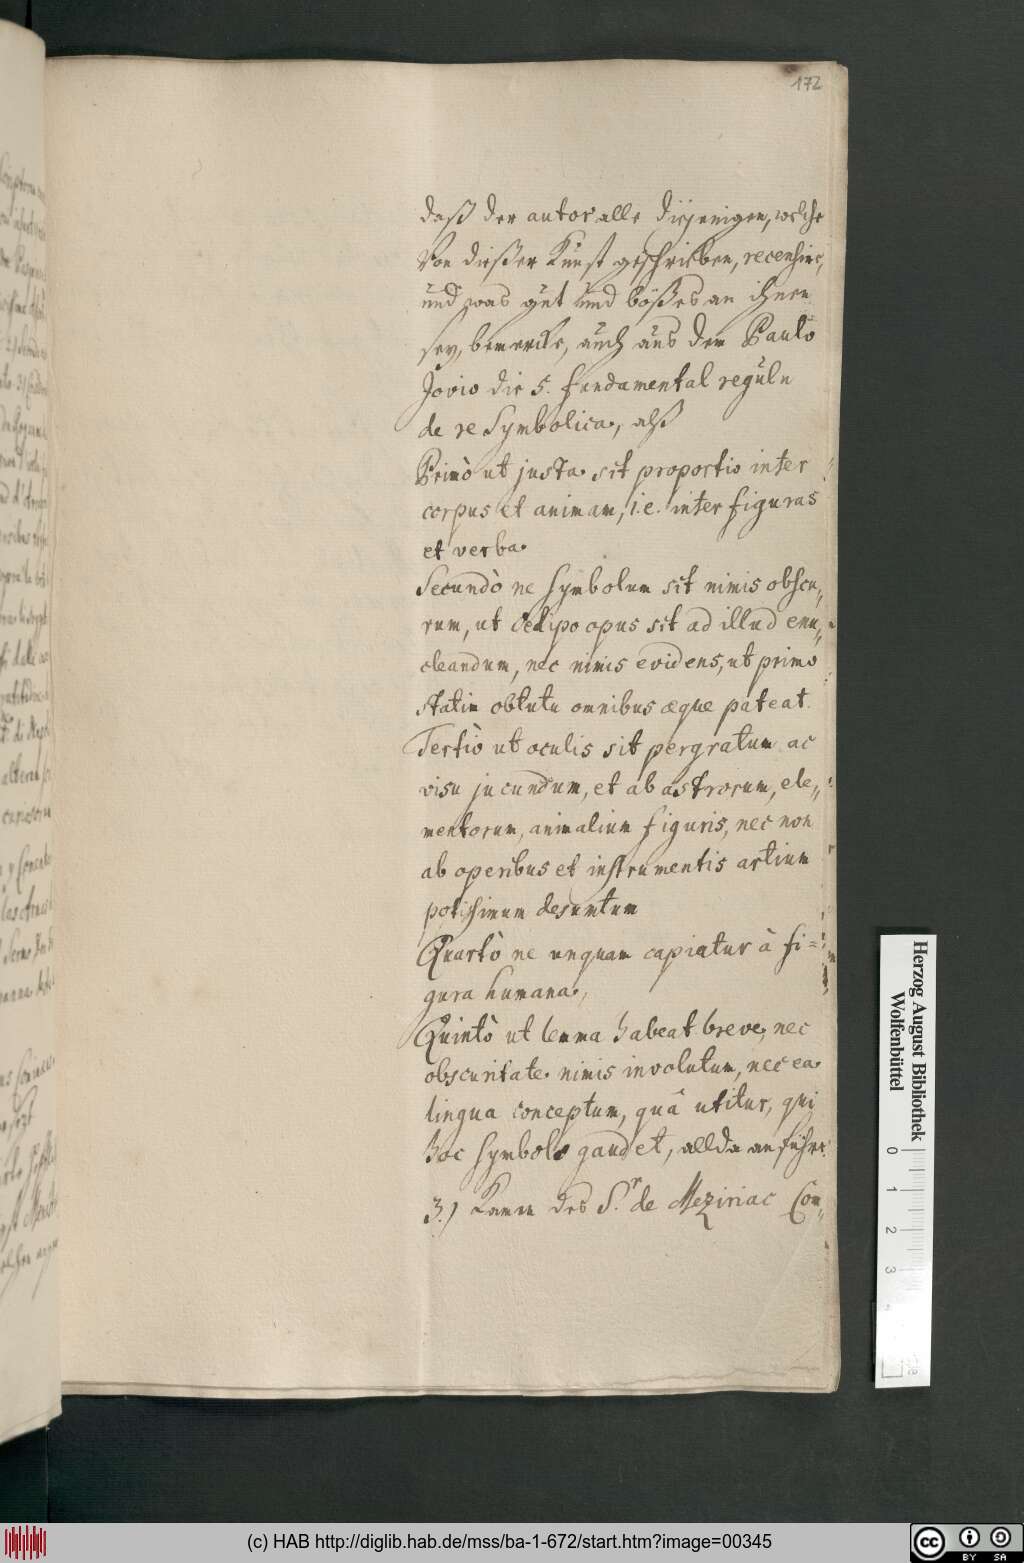 172
daß der autor alle diejenigen, welche
von dießer Kunst geschrieben, recensire,
und was gut und bößes an ihnen
sey, bemercke, auch aus dem Paulo
Jovio die 5. fundamental reguln
de re Symbolica, alß
Primò ut justa sit proportio inter
corpus et animam, i.e. inter figuras
et verba.
Secundò ne symbolum sit nimis obscu„
rum, ut Oedipo opus sit ad illud enu„
cleandum, nec nimis evidens, ut primo
statim obtutu omnibus æque pateat.
Tertiò ut oculis sit pergratum ac
visu jucundum, et ab astrorum, ele„
mentorum, animalium figuris, nec non
ab operibus et instrumentis artium
potissimum desumtum
Quartò ne unquam capiatur à fi=
gura humana,
Quintò ut lemma habeat breve, nec
obscuritate nimis involutum, nec ea
lingua conceptum, quâ utitur, qui
hoc symbolo gaudet, allda anführe.
3.) Kamm des S.r de Meziriac Com„
Herzog August Bibliothek
Wolfenbüttel
0
1
2
3
(c) HAB http://diglib.hab.de/mss/ba-1-672/start.htm?image=00345
cc
BY SA